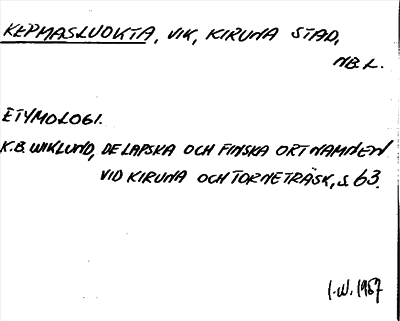 KEPMASLUOKTA, VIK, KIRUNA STAD,
NB. L.
ETYMOLOGI.
K.B. WIKLUND, DE LAPSKA OCH FINSKA ORTNAMNEN
VID KIRUNA OCH TORNETRÄSK, S. 63.
I.W. 1987